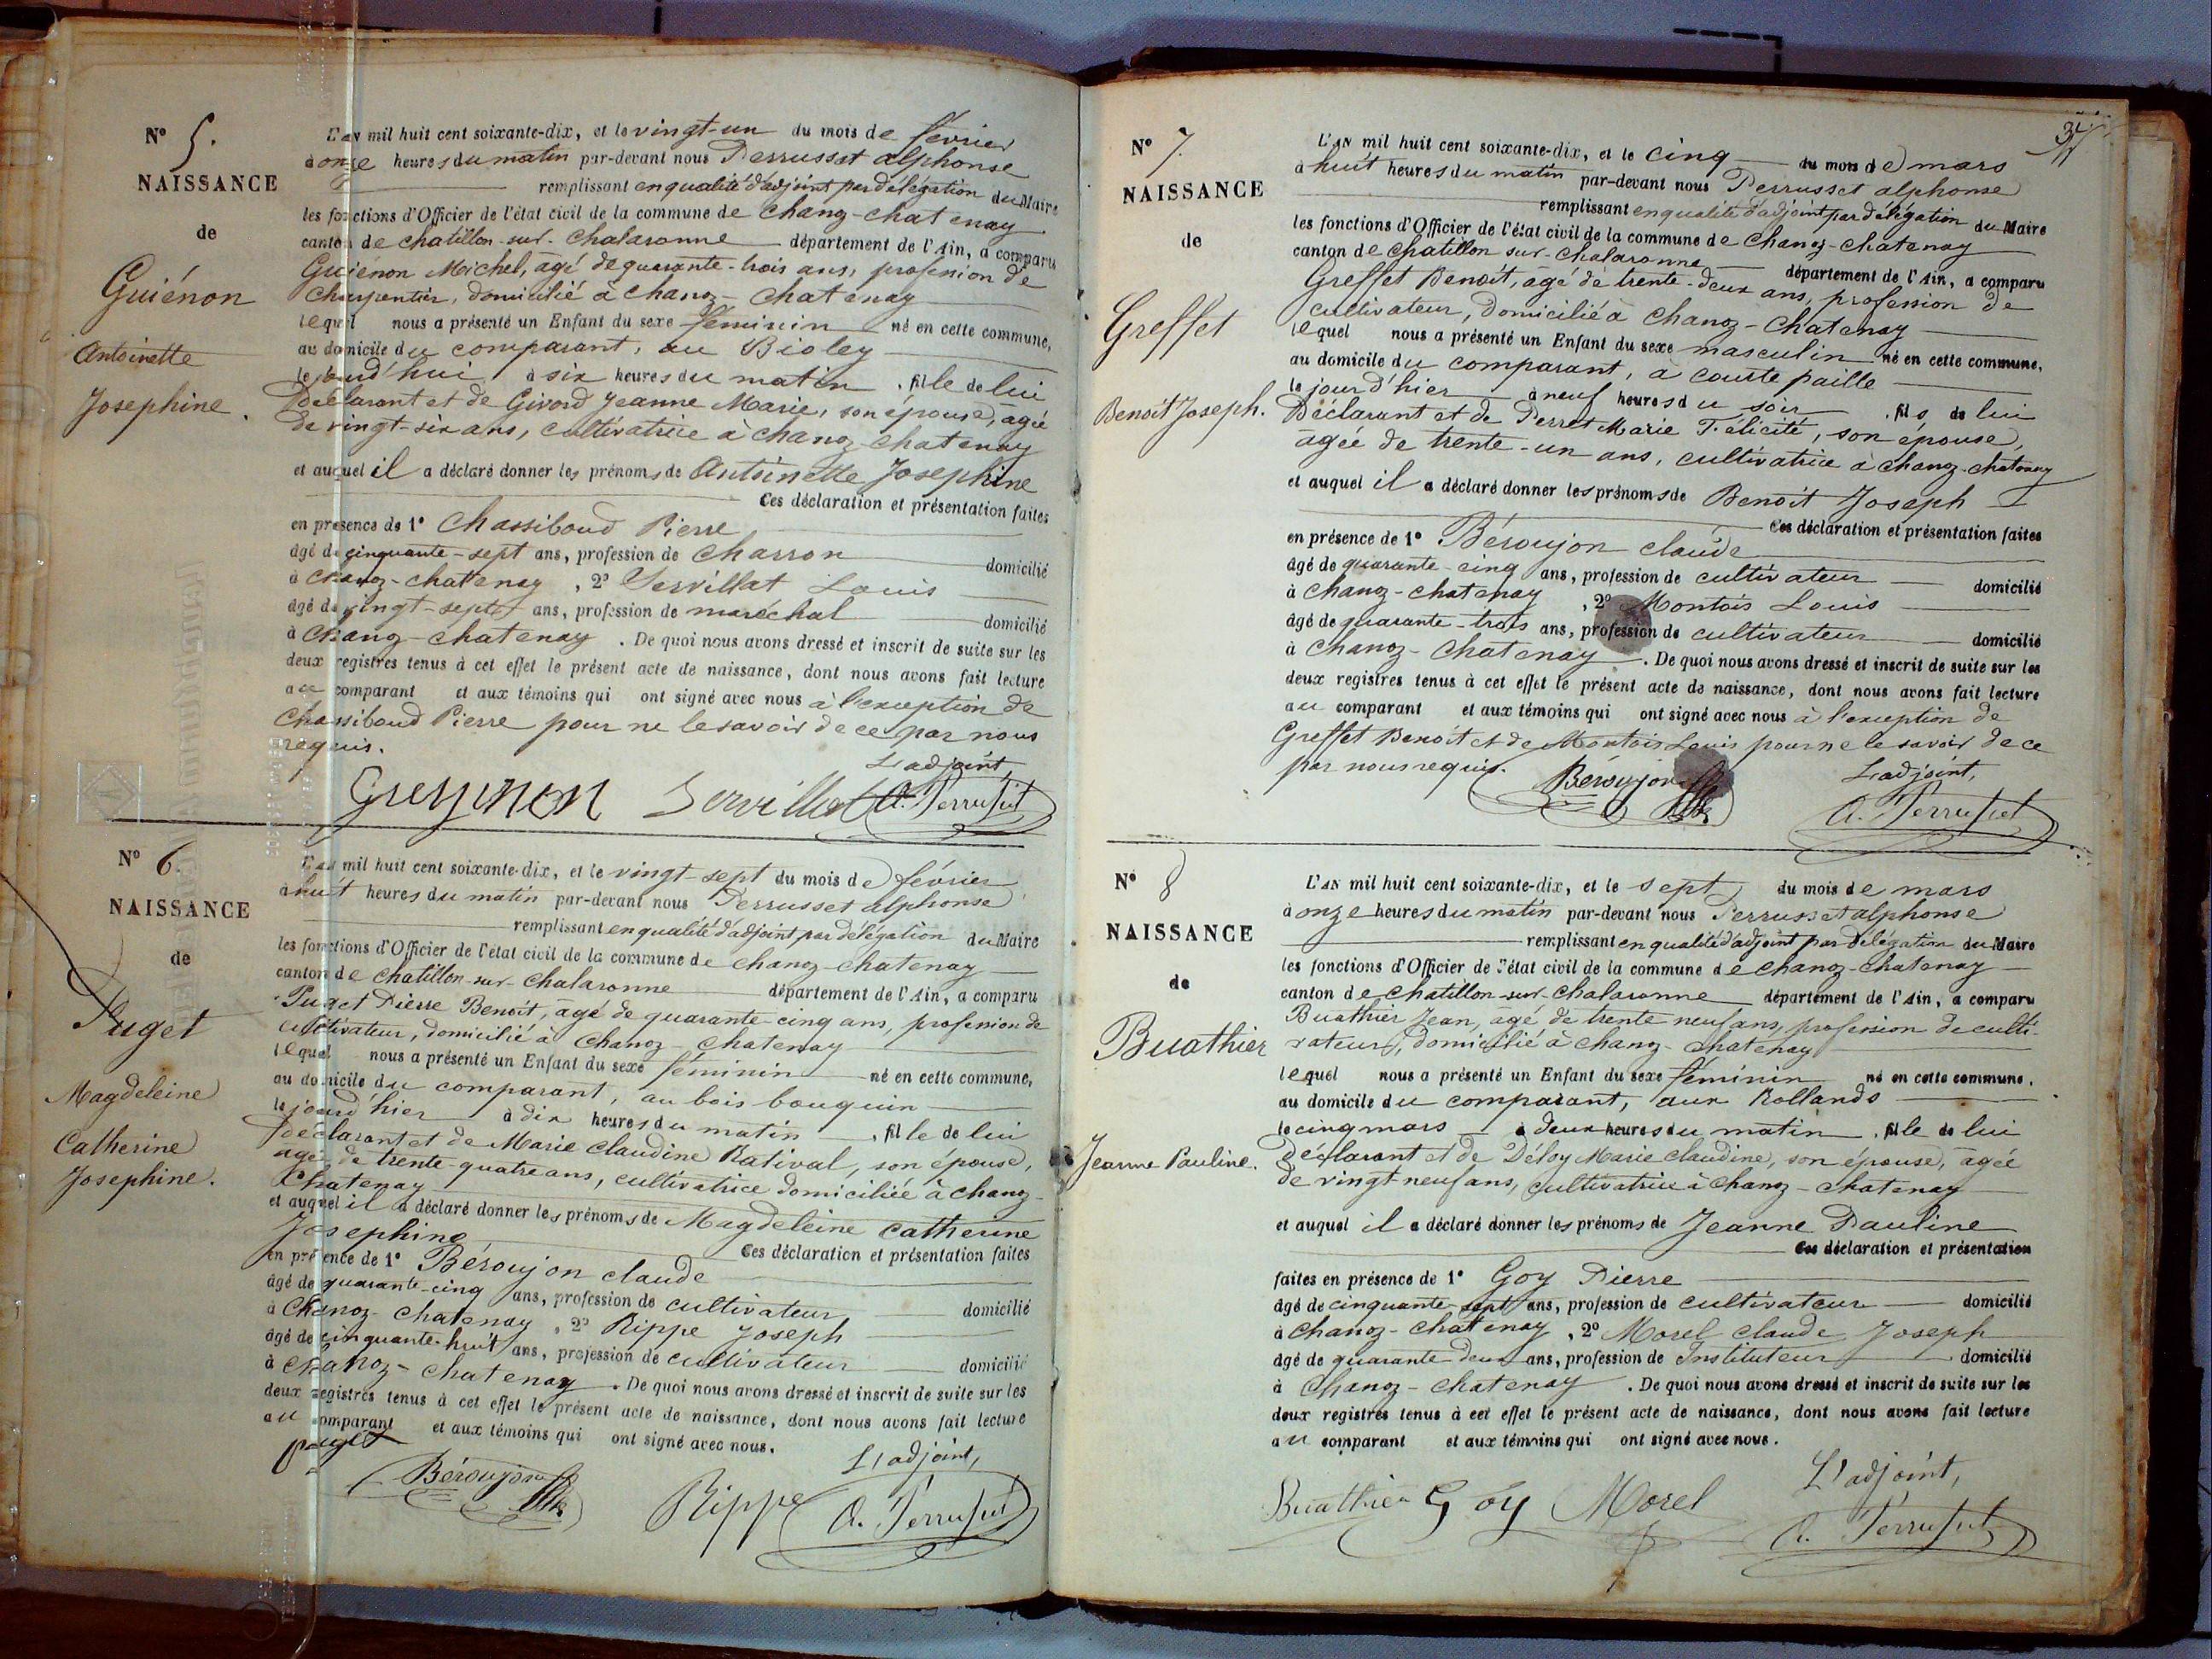 N° 5.
NAISSANCE
de
Guiénon
Antoinette
Josephine.
L'an mil huit cent soixante-dix, et le vingt-un du mois de février
à onze heures du matin par-devant nous Perrusset alphonse
remplissant en qualité d'adjoint par délégation du Maire
les fonctions d'Officier de l'état civil de la commune de Chanoz-chatenay
canton de chatillon-sur-Chalaronne département de l'Ain, a comparu
Guiénon Michel, âgé de quarante-trois ans, profession de
Charpentier, domicilié à Chanoz-Chatenay
lequel nous a présenté un Enfant du sexe féminin né en cette commune,
au domicile du comparant, au Bioley
le jourd'hui à six heures du matin, fille de lui
Déclarant et de Givord Jeanne Marie, son épouse, agée
de vingt-six ans, cultivatrice à chanoz chatenay
et auquel il a déclaré donner les prénoms de Antoinette Josephine
Ces déclaration et présentation faites
en présence de 1° Chassiboud Pierre
âgé de cinquante-sept ans, profession de Charron domicilié
à Chanoz-chatenay, 2° Servillat Louis
âgé de vingt-sept ans, profession de maréchal domicilié
à Chanoz-chatenay. De quoi nous avons dressé et inscrit de suite sur les
deux registres tenus à cet effet le présent acte de naissance, dont nous avons fait lecture
au comparant et aux témoins qui ont signé avec nous à l'exception de
Chassiboud Pierre pour ne le savoir de ce par nous
requis.
L'adjoint
Servillat A. Perrusset
N° 6.
NAISSANCE
de
Puget
Magdeleine
Catherine
Josephine.
L'an mil huit cent soixante-dix, et le vingt-sept du mois de février
à huit heures du matin par-devant nous Perrusset alphonse
remplissant en qualité d'adjoint par délégation du Maire
les fonctions d'Officier de l'état civil de la commune de chanoz-chatenay
canton de chatillon-sur-Chalaronne département de l'Ain, a comparu
Puget Pierre Benoit, âgé de quarante-cinq ans, profession de
cultivateur, domicilié à Chanoz-Chatenay
lequel nous a présenté un Enfant du sexe féminin né en cette commune,
au domicile du comparant, au bois bouquin
le jourd'hier à dix heures du matin, fille de lui
Déclarant et de Marie Claudine Ratival, son épouse,
agée de trente-quatre ans, cultivatrice domiciliée à Chanoz-
Chatenay
et auquel il a déclaré donner les prénoms de Magdeleine catherine
Josephine
Ces déclaration et présentation faites
en présence de 1° Béroujon claude
âgé de quarante-cinq ans, profession de cultivateur domicilié
à Chanoz-chatenay, 2° Rippe Joseph
âgé de cinquante-huit ans, profession de cultivateur domicilié
à Chanoz-chatenay. De quoi nous avons dressé et inscrit de suite sur les
deux registres tenus à cet effet le présent acte de naissance, dont nous avons fait lecture
au comparant et aux témoins qui ont signé avec nous.
puget
L'adjoint,
Béroujon Rippe A. Perrusset
N° 7.
NAISSANCE
de
Greffet
Benoit Joseph.
L'AN mil huit cent soixante-dix, et le cinq du mois de mars
à huit heures du matin par-devant nous Perrusset alphonse
remplissant en qualité d'adjoint par délégation du Maire
les fonctions d'Officier de l'état civil de la commune de Chanoz-chatenay
canton de Chatillon-sur-Chalaronne département de l'Ain, a comparu
Greffet Benoit, âgé de trente-deux ans, profession de
cultivateur, domicilié à Chanoz-Chatenay
lequel nous a présenté un Enfant du sexe masculin né en cette commune,
au domicile du comparant, à courte paille
le jourd'hier à neuf heures du soir, fils de lui
Déclarant et de Perret Marie Félicité, son épouse,
agée de trente-un ans, cultivatrice à Chanoz-chatenay
et auquel il a déclaré donner les prénoms de Benoit Joseph
Ces déclaration et présentation faites
en présence de 1° Béroujon claude
âgé de quarante-cinq ans, profession de cultivateur domicilié
à Chanoz-chatenay, 2° Montois Louis
âgé de quarante-trois ans, profession de cultivateur domicilié
à Chanoz-Chatenay. De quoi nous avons dressé et inscrit de suite sur les
deux registres tenus à cet effet le présent acte de naissance, dont nous avons fait lecture
au comparant et aux témoins qui ont signé avec nous à l'exception de
Greffet Benoit et de Montois Louis pour ne le savoir de ce
par nous requis.
L'adjoint,
Béroujon A. Perrusset
N° 8
NAISSANCE
de
Buathier
Jeanne Pauline.
L'AN mil huit cent soixante-dix, et le sept du mois de mars
à onze heures du matin par-devant nous Perrusset alphonse
remplissant en qualité d'adjoint par délégation du Maire
les fonctions d'Officier de l'état civil de la commune de chanoz-chatenay
canton de Chatillon-sur-Chalaronne département de l'Ain, a comparu
Buathier Jean, agé de trente neuf ans, profession de culti-
vateur, domicilié à Chanoz-chatenay
lequel nous a présenté un Enfant du sexe féminin né en cette commune,
au domicile du comparant, aux Rollands
le cinq mars à deux heures du matin, fille de lui
Déclarant et de Déloy Marie Claudine, son épouse, agée
de vingt neuf ans, cultivatrice à Chanoz-chatenay
et auquel il a déclaré donner les prénoms de Jeanne Pauline
Ces déclaration et présentation
faites en présence de 1° Goy Pierre
âgé de cinquante-sept ans, profession de cultivateur domicilié
à Chanoz-chatenay, 2° Morel claude Joseph
âgé de quarante deux ans, profession de Instituteur domicilié
à Chanoz-chatenay. De quoi nous avons dressé et inscrit de suite sur les
deux registres tenus à cet effet le présent acte de naissance, dont nous avons fait lecture
au comparant et aux témoins qui ont signé avec nous.
L'adjoint,
Buathier Goy Morel A. Perrusset